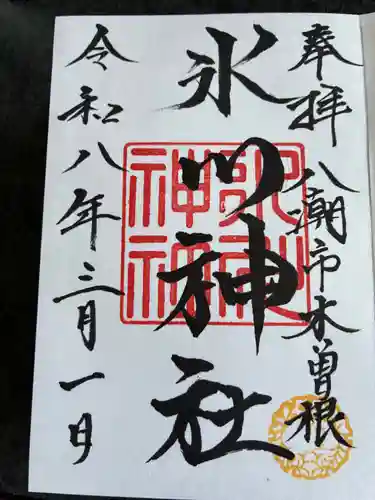 奉拝 八潮市木曽根
氷川神社
令和八年三月一日